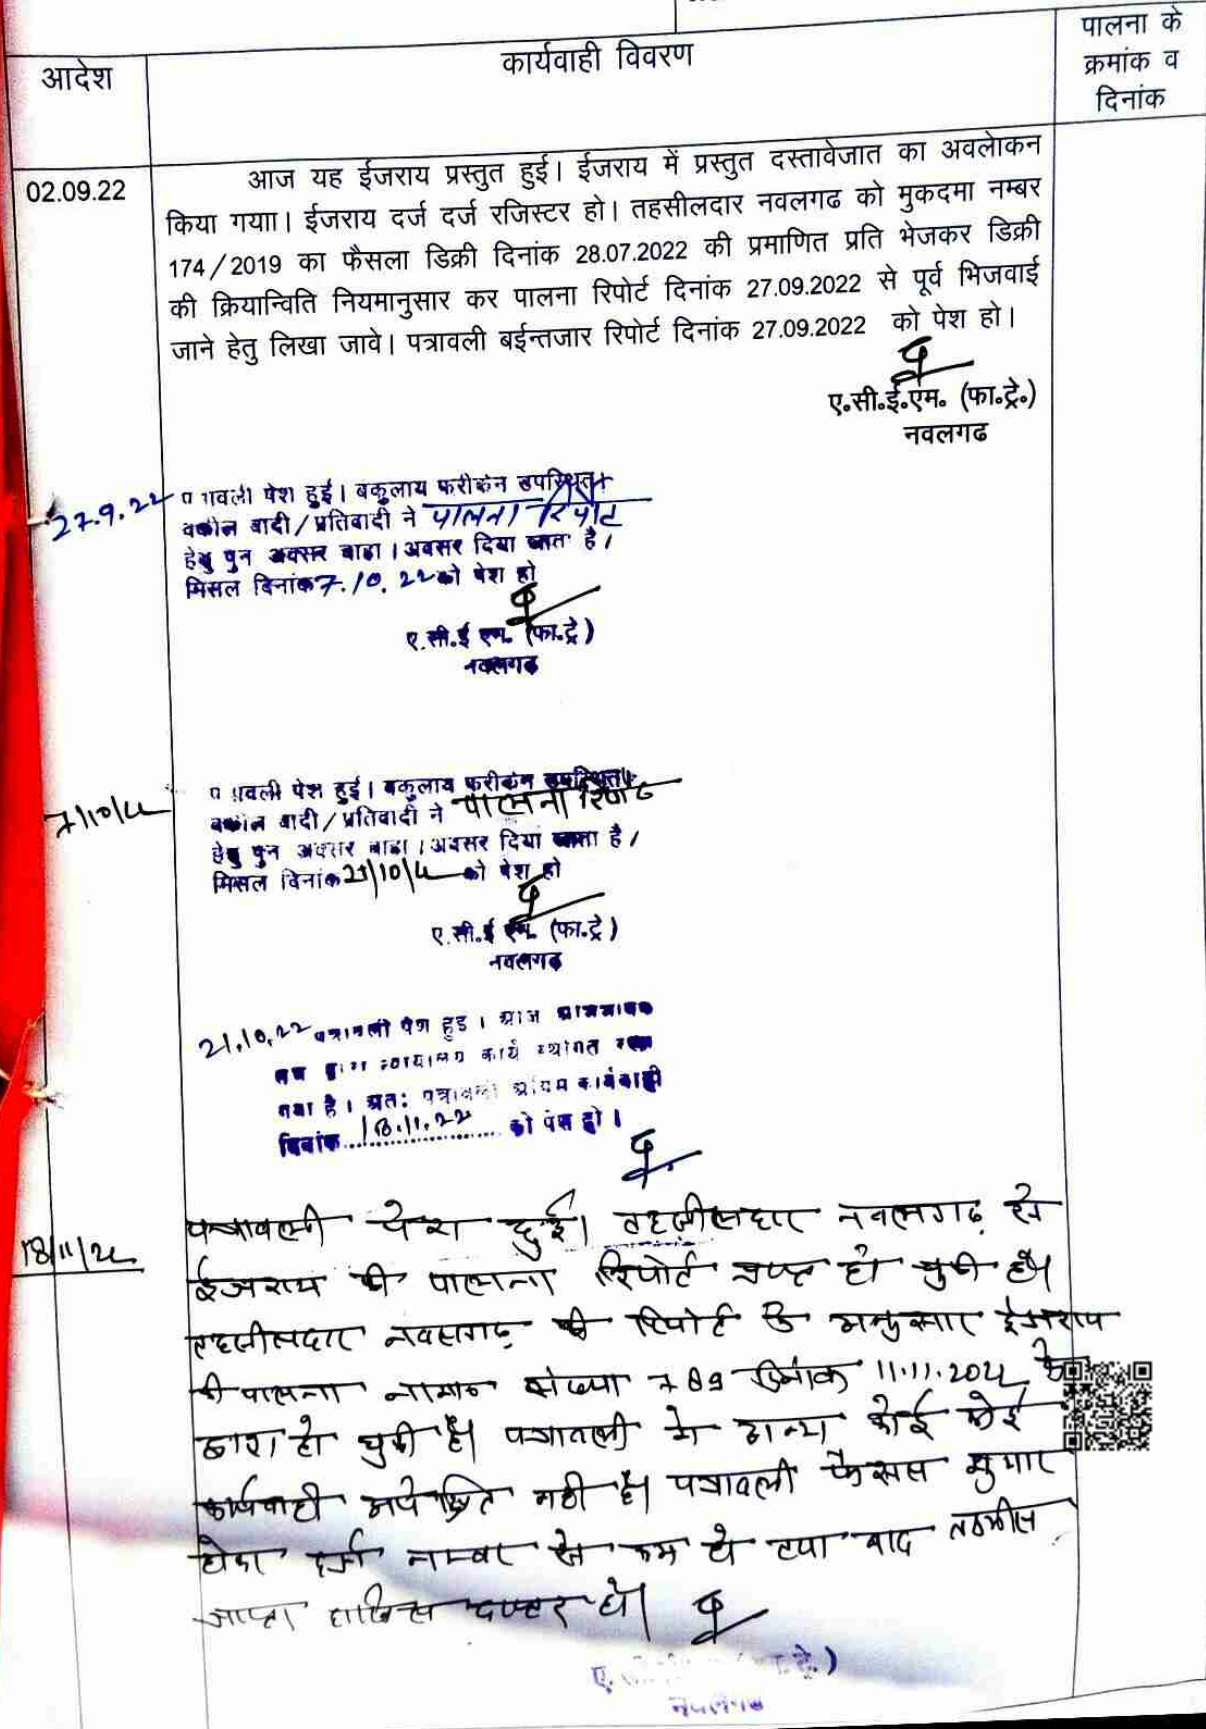 आदेश
कार्यवाही विवरण
पालना के
क्रमांक व
दिनांक
02.09.22
आज यह ईजराय प्रस्तुत हुई। ईजराय में प्रस्तुत दस्तावेजात का अवलोकन
किया गयाा। ईजराय दर्ज दर्ज रजिस्टर हो। तहसीलदार नवलगढ को मुकदमा नम्बर
174/2019 का फैसला डिक्री दिनांक 28.07.2022 की प्रमाणित प्रति भेजकर डिक्री
की क्रियान्विति नियमानुसार कर पालना रिपोर्ट दिनांक 27.09.2022 से पूर्व भिजवाई
जाने हेतु लिखा जावे। पत्रावली बईन्तजार रिपोर्ट दिनांक 27.09.2022 को पेश हो।
ए.सी.ई.एम. (फा.ट्रे.)
नवलगढ
27.9.22
पत्रावली पेश हुई। वकुलाय फरीकेन उपस्थित।
वकील वादी/प्रतिवादी ने पालना रिपोर्ट
हेतु पुन अवसर चाहा। अवसर दिया जाता है।
मिसल दिनांक 7.10.22 को पेश हो
ए.सी.ई एम. (फा.ट्रे)
नवलगढ
7/10/22
पत्रावली पेश हुई। वकुलाय फरीकेन उपस्थित।
वकील वादी/प्रतिवादी ने पालना रिपोर्ट
हेतु पुन अवसर चाहा। अवसर दिया जाता है।
मिसल दिनांक 21/10/22 को पेश हो
ए.सी.ई एम. (फा.ट्रे)
नवलगढ
21.10.22 पत्रावली पेश हुई। आज
न्यायालय कार्य स्थगित रखा
गया है। अतः पत्रावली अग्रिम कार्यवाही
दिनांक 18.11.22 को पेश हो।
18/11/22
पत्रावली पेश हुई। तहसीलदार नवलगढ़ से
ईजराय की पालना रिपोर्ट प्राप्त हो चुकी है।
तहसीलदार नवलगढ़ की रिपोर्ट के अनुसार ईजराय
की पालना संख्या 789 दिनांक 11.11.2022 के
द्वारा हो चुकी है। पत्रावली मे अन्य कोई कोई
कार्यवाही अपेक्षित नही है। पत्रावली फैसल शुमार
होकर दर्ज नम्बर से कम हो तथा बाद तकमील
जाप्ता दाखिल दफ्तर हो।
नवलगढ